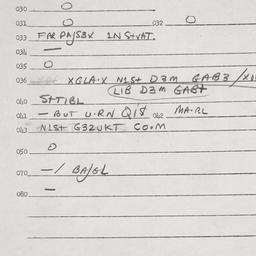 030 O
031 O 032 O
033 FAR PA/SBX IN S+VAT.
034 —
035 O
036 XGLA·X NLS+ D3M GAB3/XL
(LIB D3M GAB+
040 S+TIBL
041 — BUT U·RN QI$ 042 MA·RL
043 NLS+ G32UKT CO·M
050 O
070 —/ BA/GL
080 —